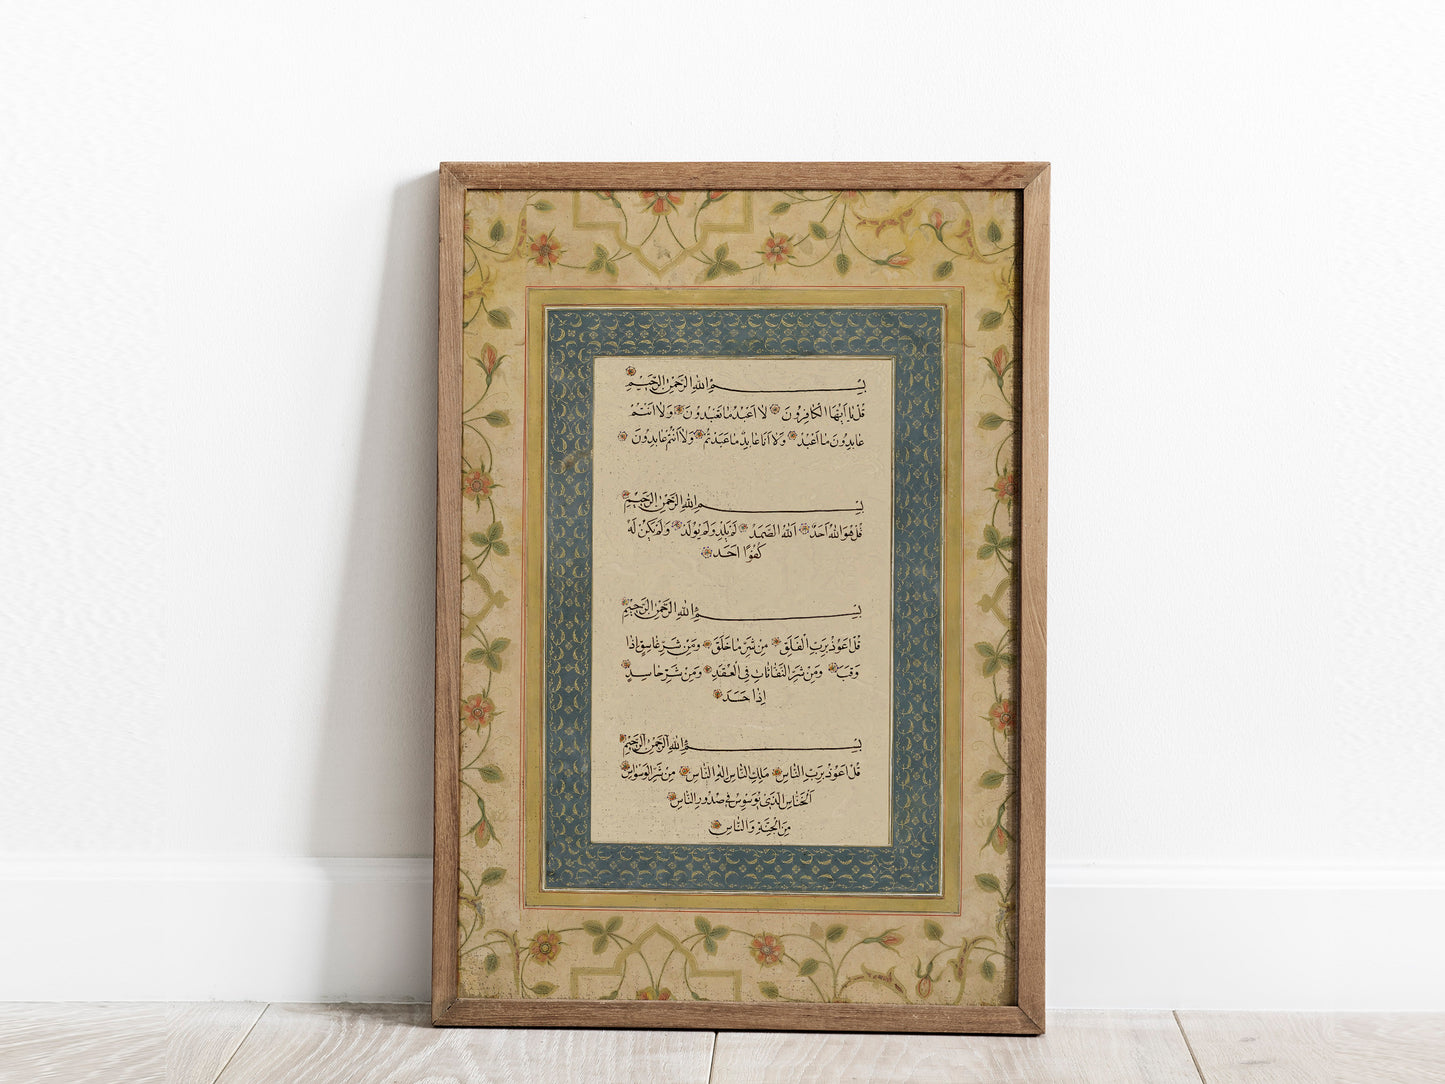 بِسْمِ اللهِ الرَّحْمٰنِ الرَّحِيْمِ
قُلْ يَا اَيُّهَا الْكَافِرُوْنَ لَا اَعْبُدُ مَا تَعْبُدُوْنَ وَلَا اَنْتُمْ
عَابِدُوْنَ مَا اَعْبُدُ وَلَا اَنَا عَابِدٌ مَا عَبَدْتُمْ وَلَا اَنْتُمْ عَابِدُوْنَ
بِسْمِ اللهِ الرَّحْمٰنِ الرَّحِيْمِ
قُلْ هُوَ اللهُ اَحَدٌ اَللهُ الصَّمَدُ لَمْ يَلِدْ وَلَمْ يُوْلَدْ وَلَمْ يَكُنْ لَهُ
كُفُوًا اَحَدٌ
بِسْمِ اللهِ الرَّحْمٰنِ الرَّحِيْمِ
قُلْ اَعُوْذُ بِرَبِّ الْفَلَقِ مِنْ شَرِّ مَا خَلَقَ وَمِنْ شَرِّ غَاسِقٍ اِذَا
وَقَبَ وَمِنْ شَرِّ النَّفَّاثَاتِ فِي الْعُقَدِ وَمِنْ شَرِّ حَاسِدٍ
اِذَا حَسَدَ
بِسْمِ اللهِ الرَّحْمٰنِ الرَّحِيْمِ
قُلْ اَعُوْذُ بِرَبِّ النَّاسِ مَلِكِ النَّاسِ اِلٰهِ النَّاسِ مِنْ شَرِّ الْوَسْوَاسِ
الْخَنَّاسِ الَّذِيْ يُوَسْوِسُ فِيْ صُدُوْرِ النَّاسِ
مِنَ الْجِنَّةِ وَالنَّاسِ